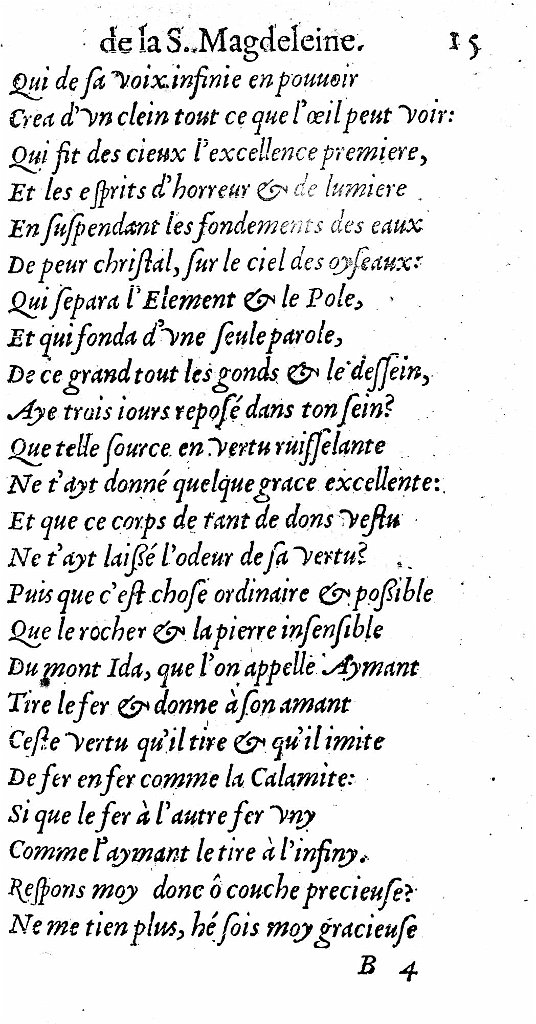 de la S. Magdeleine. 15
Qui de ſa voix infinie en pouuoir
Crea d'vn clein tout ce que l'œil peut voir:
Qui fit des cieux l'excellence premiere,
Et les eſprits d'horreur & de lumiere
En ſuſpendant les fondements des eaux
De peur chriſtal, ſur le ciel des oyſeaux:
Qui ſepara l'Element & le Pole,
Et qui fonda d'vne ſeule parole,
De ce grand tout les gonds & le deſſein,
Aye trois iours repoſé dans ton ſein?
Que telle ſource en vertu ruiſſelante
Ne t'ayt donné quelque grace excellente:
Et que ce corps de tant de dons veſtu
Ne t'ayt laiſſé l'odeur de ſa vertu?
Puis que c'eſt choſe ordinaire & poſſible
Que le rocher & la pierre inſenſible
Du mont Ida, que l'on appelle Aymant
Tire le fer & donne à ſon amant
Ceſte vertu qu'il tire & qu'il imite
De fer en fer comme la Calamite:
Si que le fer à l'autre fer vny
Comme l'aymant le tire à l'infiny.
Reſpons moy donc ô couche precieuſe?
Ne me tien plus, hé ſois moy gracieuſe
B 4